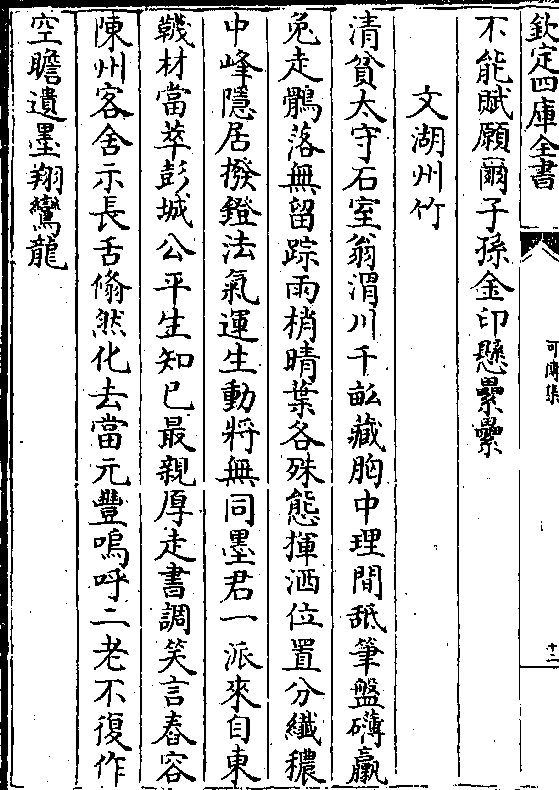 欽定四庫全書
可傳集
十二
不能賦願爾子孫金印懸纍纍
文湖州竹
清貧太守石室翁渭川千畝藏胸中理閒舐筆盤礴臝
兔走鶻落無留踪雨梢晴葉各殊態揮洒位置分纖穠
中峰隱居撥鐙法氣運生動將無同墨君一派來自東
韈材當萃彭城公平生知已最親厚走書調笑言舂容
陳州客舍示長舌翛然化去當元豐嗚呼二老不復作
空瞻遺墨翔鸞龍